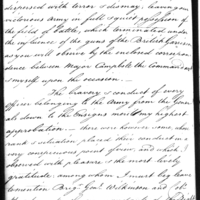 dispersed with terror & dismay, leaving our
victorious army in full & quiet possession of
the field of battle, which terminated under
the influence of the guns of the British Garrison
as you will observe by the enclosed correspon-
dence between Major Campbell the Commandant
& myself upon the occasion —
The bravery & conduct of every
officer belonging to the Army from the Gener
als down to the Ensigns merit my highest
approbation — there were however some, whose
rank & situation placed their conduct in a
very conspicuous point of view, and which I
observed with pleasure & the most lively
gratitude, among whom I must beg leave
to mention Brig.r Gen.l Wilkinson and Col.